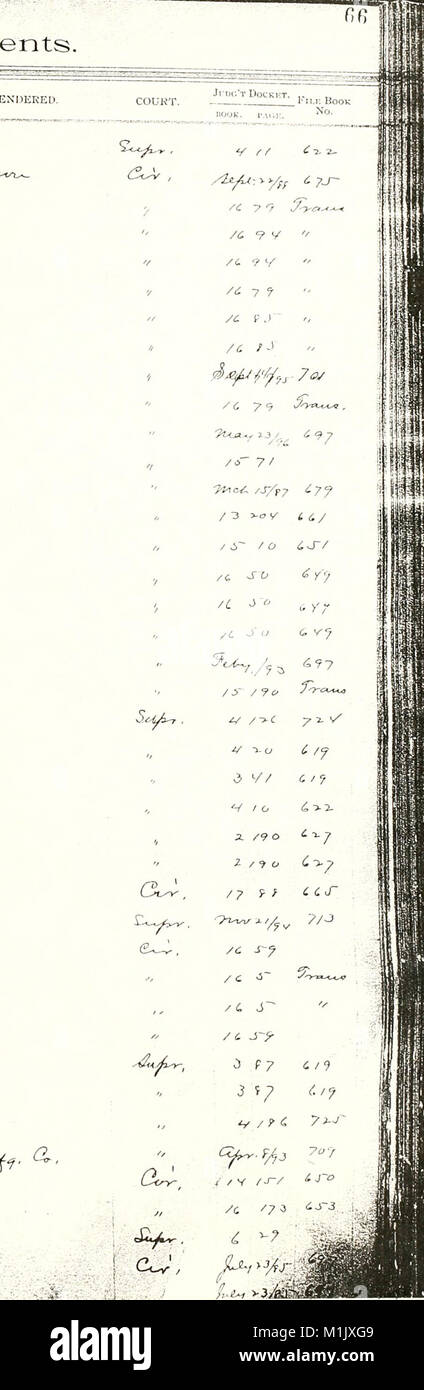 66
ents.
ENDERED. COURT. JUDG'T DOCKET. FILE BOOK
BOOK. PAGE. No.
Supr. 4 11 622
Cir. Sept. 22/88 675
" 16 79 Trans
" 16 94 "
" 16 94 "
" 16 79 "
" 16 85 "
" 16 85 "
" Sept /95 701
" 16 79 Trans.
" May 23/96 697
" 15 71
" Mch 15/87 679
" 13 204 661
" 15 10 651
" 16 50 649
" 16 50 647
" 16 50 649
" Feby. /93 697
" 15 190 Trans
Supr. 4 126 724
" 4 20 619
" 3 41 619
" 4 10 622
" 2 190 627
" 2 190 627
Cir. 17 88 665
Supr. Nov 21/94 713
Cir. 16 59
" 16 5 Trans
" 16 5 "
" 16 59
Supr. 3 87 619
" 3 87 619
" 4 186 725
fg. Co. " Apr. 8/93 709
Cir. 14 151 650
" 16 173 653
Supr. 6 29
Cir. July 23/85
July 23/85
alamy
Image ID: M1JXG9
www.alamy.com